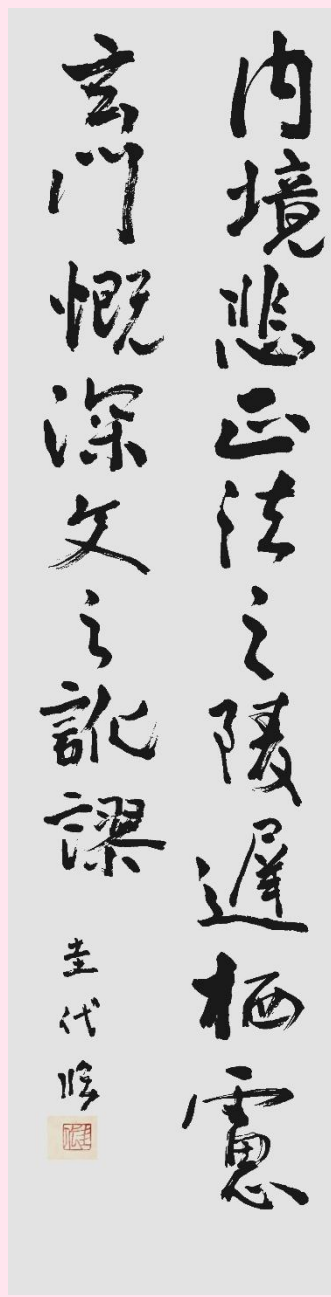 内境悲正法之陵遲栖慮
玄門慨深文之訛謬
圭代臨